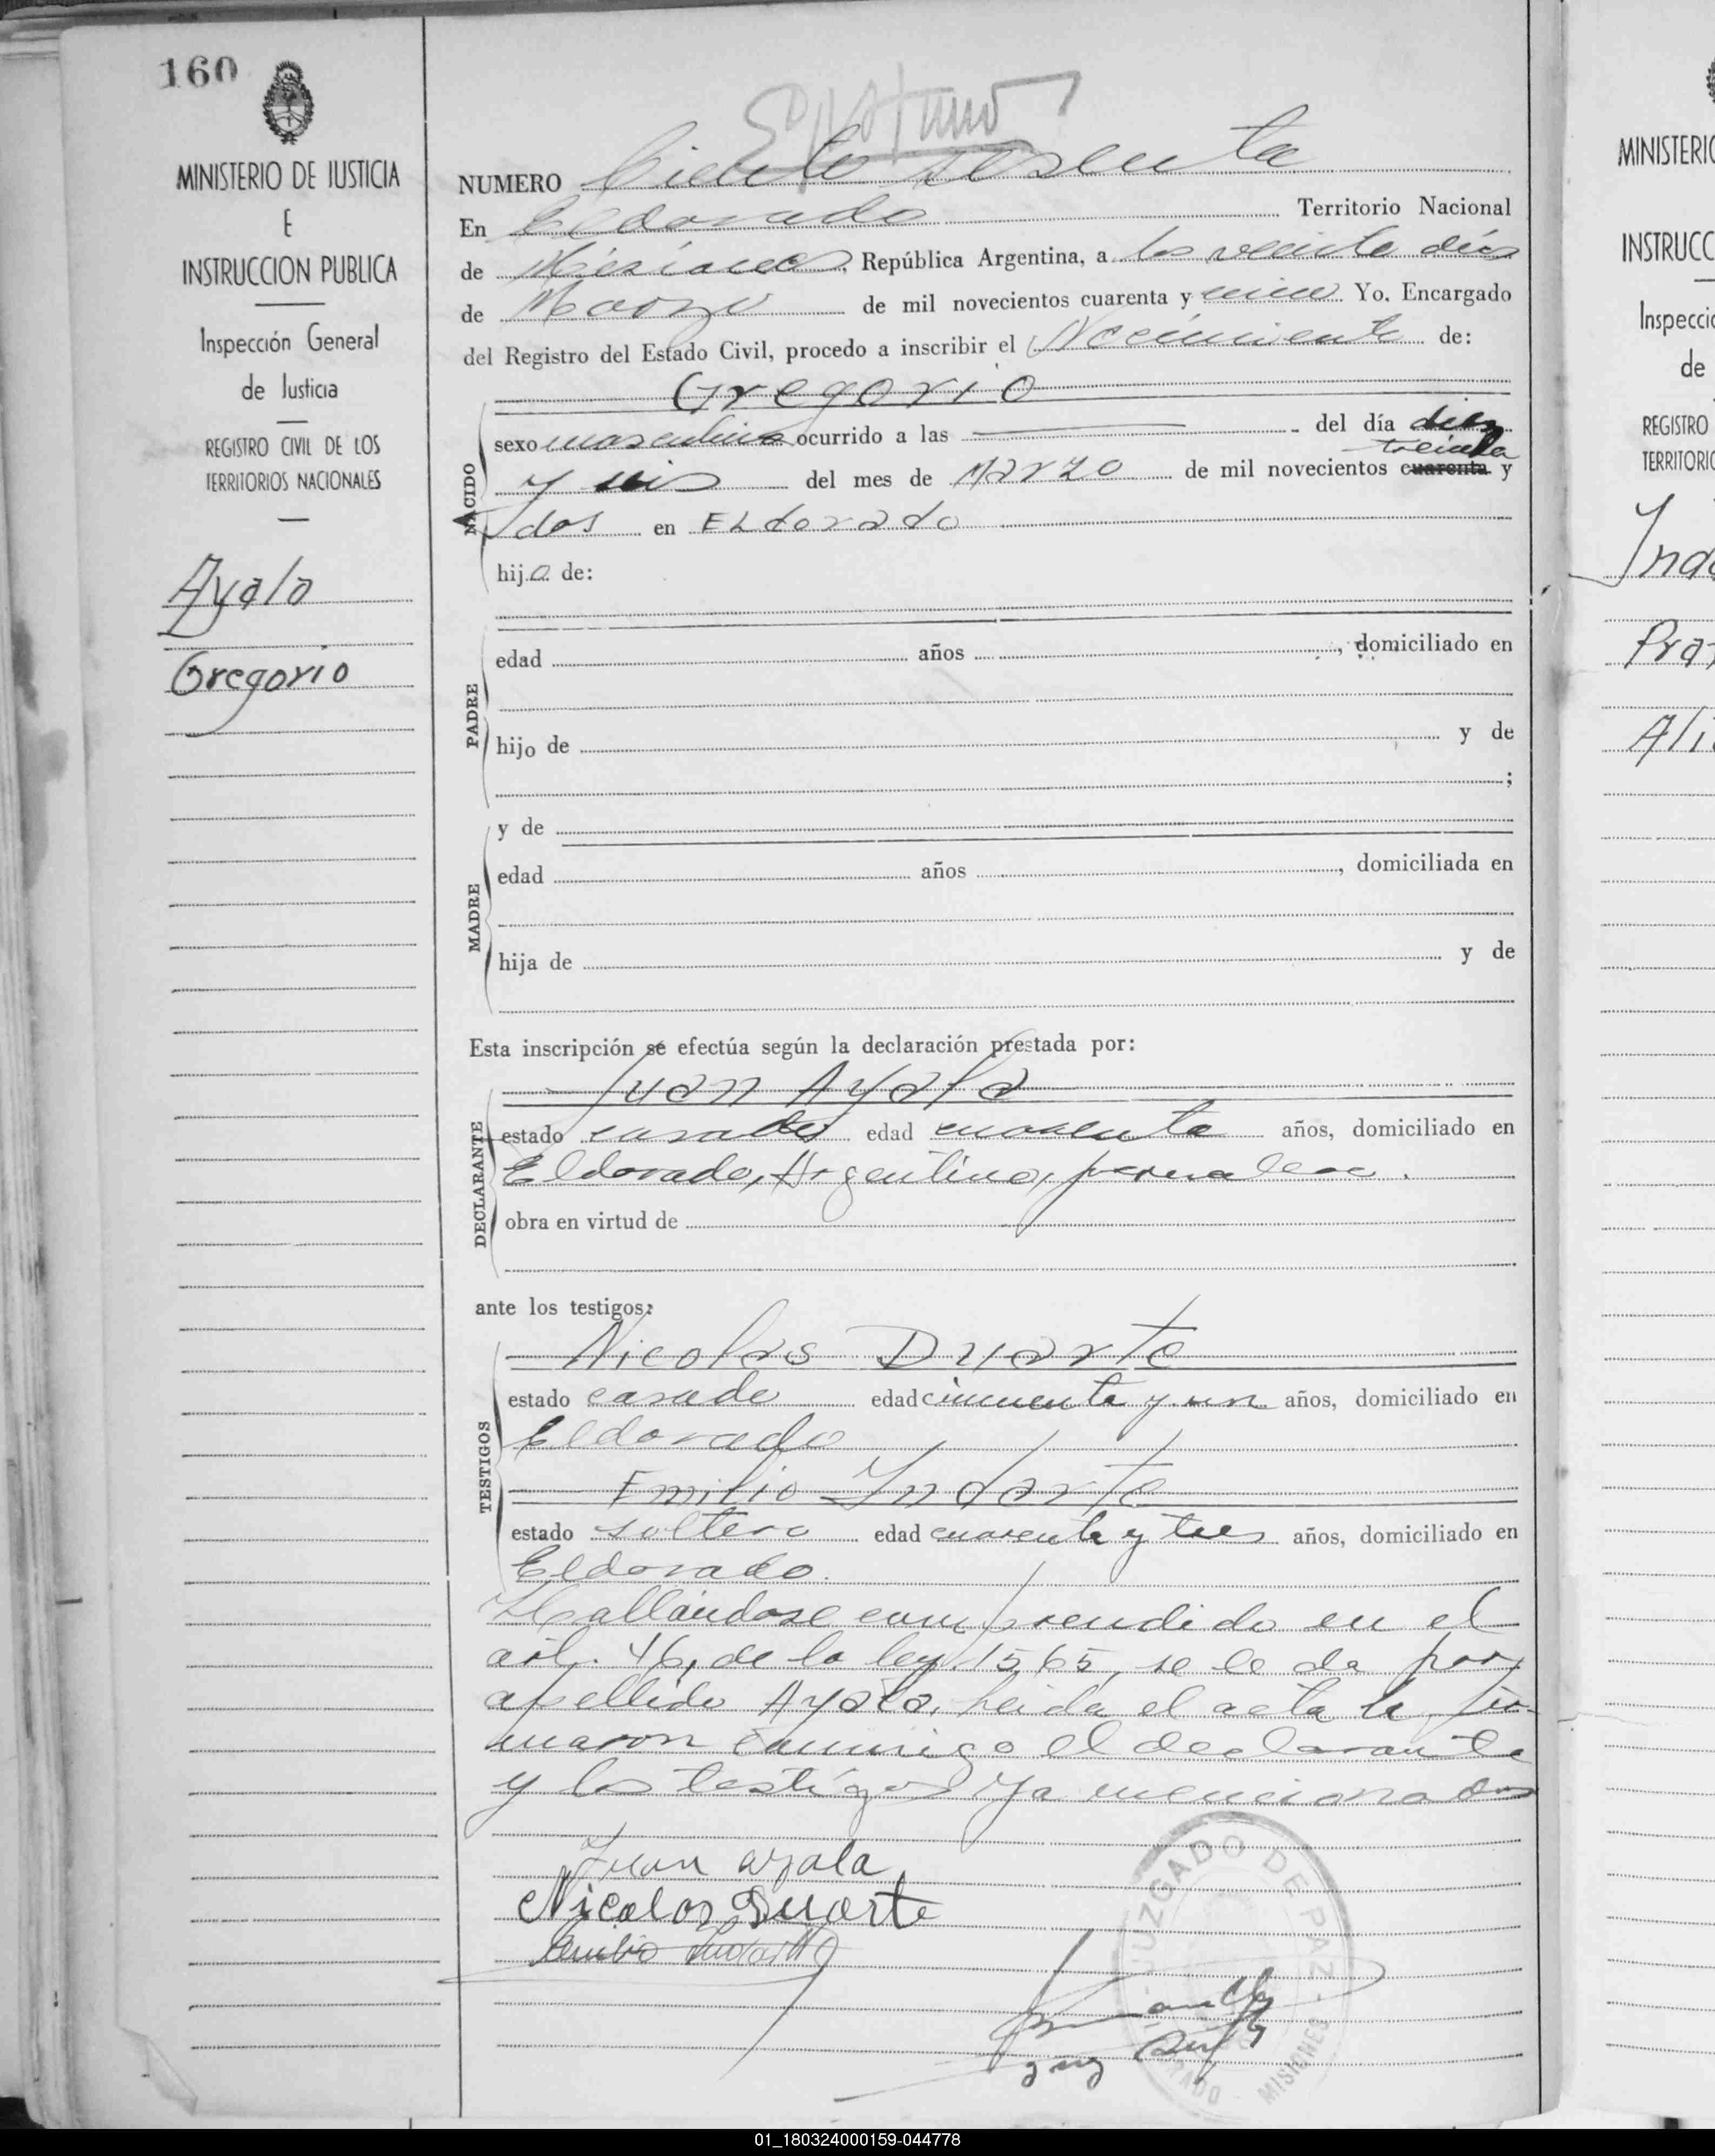 160
MINISTERIO DE JUSTICIA
E
INSTRUCCION PUBLICA
Inspección General
de Justicia
REGISTRO CIVIL DE LOS
TERRITORIOS NACIONALES
Ayala
Gregorio
NUMERO Ciento sesenta
En Eldorado Territorio Nacional
de Misiones, República Argentina, a los veinte días
de Marzo de mil novecientos cuarenta y Yo. Encargado
del Registro del Estado Civil, procedo a inscribir el Nacimiento de:
Gregorio
NACIDO
sexo masculino ocurrido a las del día diez
treinta
y seis del mes de Marzo de mil novecientos cuarenta y
dos en ELdorado
hijo de:
PADRE
edad años , domiciliado en
hijo de y de
;
MADRE
y de
edad años , domiciliada en
hija de y de
Esta inscripción se efectúa según la declaración prestada por:
Juan Ayala
DECLARANTE
estado casado edad cuarenta años, domiciliado en
Eldorado, Argentino,
obra en virtud de
ante los testigos:
Nicolas Duarte
TESTIGOS
estado casado edad cincuenta y un años, domiciliado en
Eldorado
Emilio Yndarte
estado soltero edad cuarenta y tres años, domiciliado en
Eldorado.
Hallándose comprendido en el
art. 46, de la ley 1565, se le da por
apellido Ayala. Leida el acta la fir-
maron conmigo el declarante
y los testigos ya mencionados
Juan ayala
Nicolas Duarte
JUZGADO DE PAZ
MISIONES
MINISTERIO
INSTRUCC
Inspecció
de
REGISTRO
TERRITORIO
Inda
Pra
Ali
01_180324000159-044778